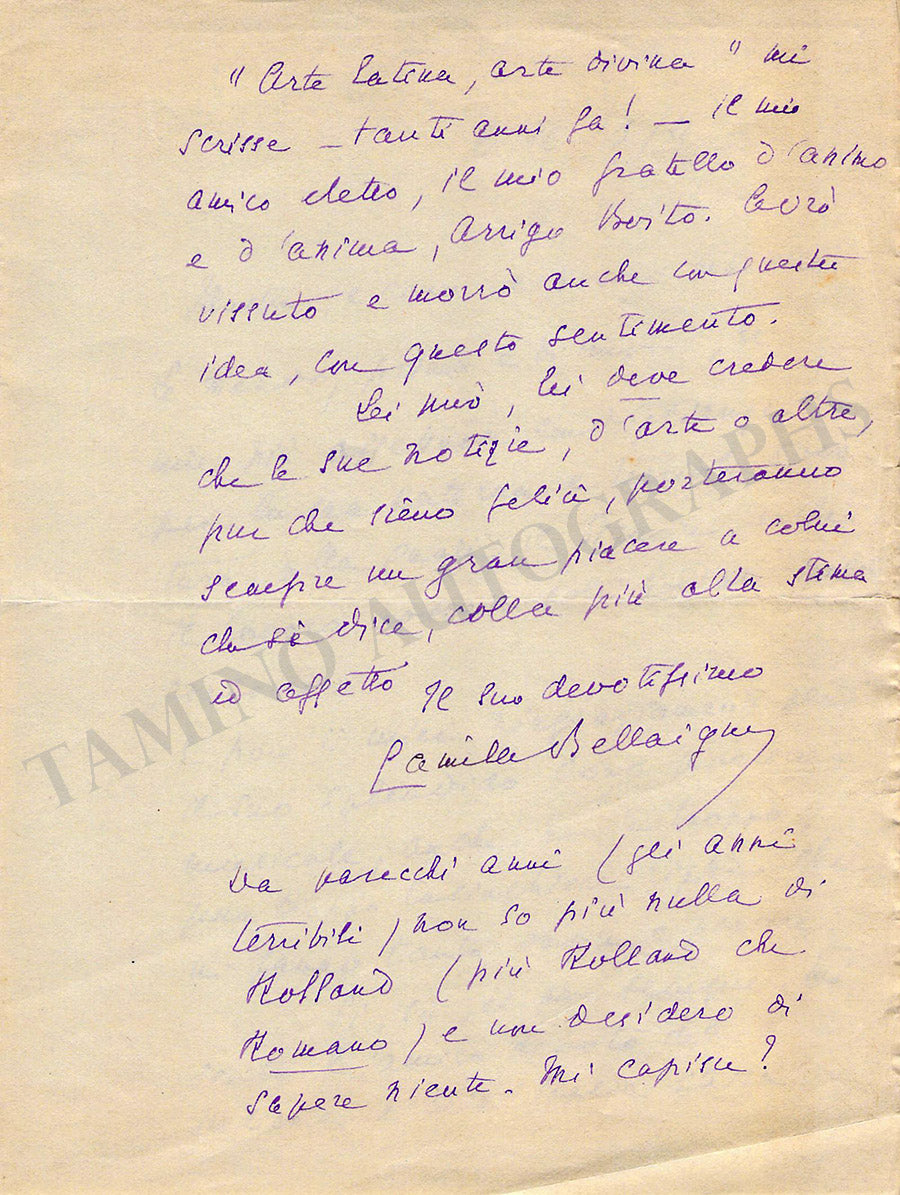 "Arte Latina, arte divina" mi
scrisse – tanti anni fa! – il mio
amico eletto, il mio fratello d'animo
e d'anima, Arrigo Boito. Avrò
vissuto e morrò anche con questa
idea, con questo sentimento.
Lei può, Lei deve credere
che le sue notizie, d'arte o altre,
pur che sieno felici, porteranno
sempre un gran piacere a colui
che si dice, colla più alta stima
ed affetto Il suo devotissimo
Camille Bellaigue
Da parecchi anni (gli anni
terribili) non so più nulla di
Rolland (più Rolland che
Romano) e non desidero di
sapere niente. Mi capisce?
TAMINO AUTOGRAPHS